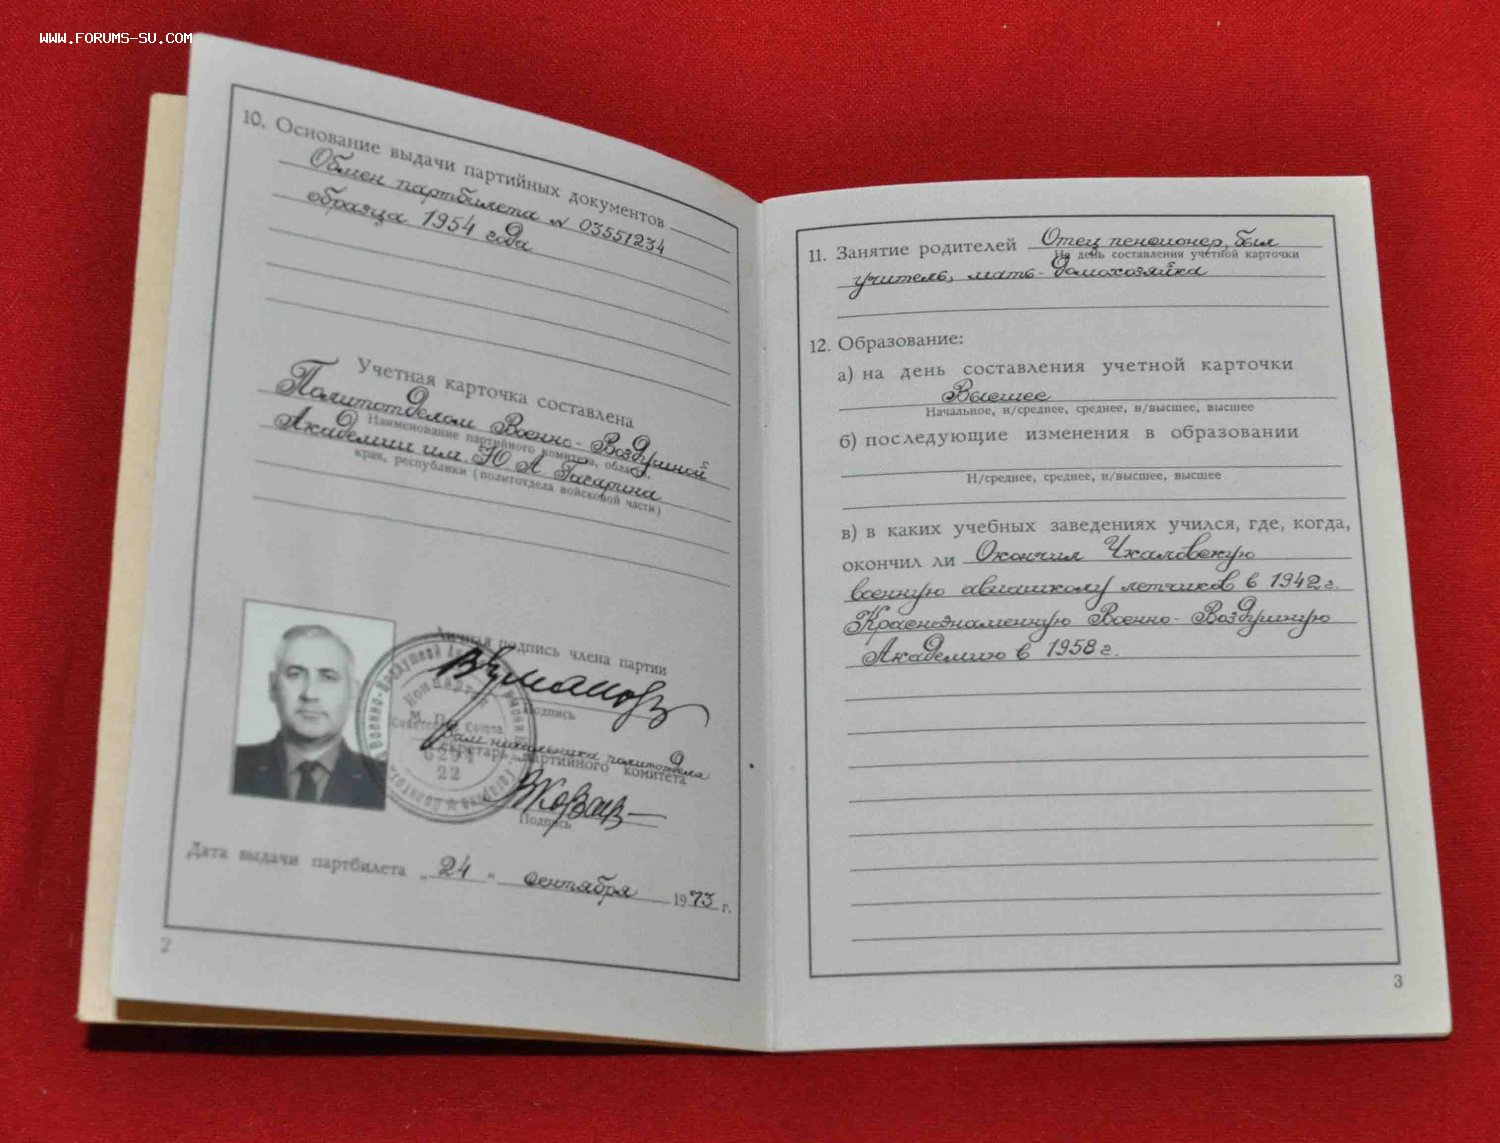 WWW.FORUMS-SU.COM
10. Основание выдачи партийных документов
Обмен партбилета N 03551234
образца 1954 года
Учетная карточка составлена
Политотделом Военно-Воздушной
Наименование партийного комитета, области,
Академии им. Ю. А. Гагарина
края, республики (политотдела войсковой части)
Личная подпись члена партии
Подпись
М. П.
Зам. начальника политотдела
Секретарь партийного комитета
Подпись
6294
22
Дата выдачи партбилета „24" сентября 1973 г.
2
11. Занятие родителей Отец пенсионер, был
На день составления учетной карточки
учитель, мать - домохозяйка
12. Образование:
а) на день составления учетной карточки
Высшее
Начальное, н/среднее, среднее, н/высшее, высшее
б) последующие изменения в образовании
Н/среднее, среднее, н/высшее, высшее
в) в каких учебных заведениях учился, где, когда,
окончил ли Окончил Чкаловскую
военную авиашколу летчиков в 1942 г.
Краснознаменную Военно-Воздушную
Академию в 1958 г.
3